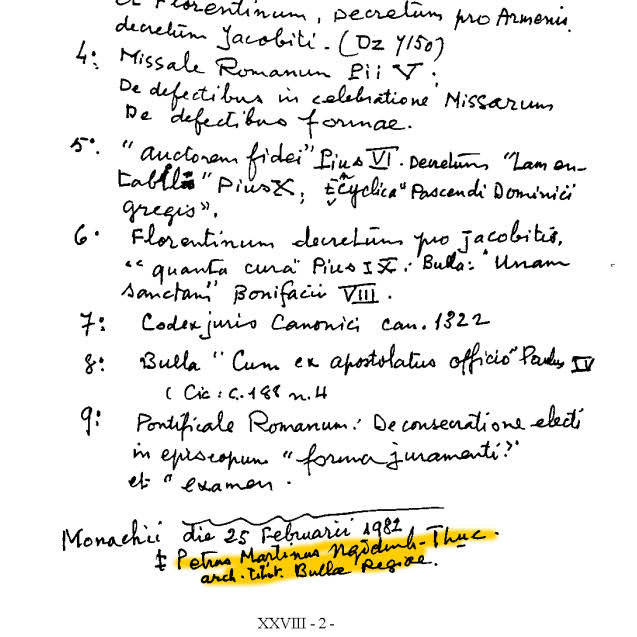 et Florentinum, Decretum pro Armenis.
decretum Jacobiti. (Dz 7150)
4: Missale Romanum Pii V:
De defectibus in celebratione Missarum
De defectibus formae.
5. "auctorem fidei" Pius VI. Decretum "Lamen-
tabili" Pius X, Ecyclica "Pascendi Dominici
gregis".
6. Florentinum decretum pro jacobitis,
"quanta cura" Pius IX: Bulla: "Unam
sanctam" Bonifacii VIII.
7: Codex juris Canonici can. 1322
8: Bulla "Cum ex apostolatus officio" Paulus IV
(Cic: c. 188 n. 4
9: Pontificale Romanum: De consecratione electi
in episcopum "forma juramenti"
et "examen.
Monachii die 25 Februarii 1982
‡ Petrus Martinus Ngôdinh-Thuc.
arch. titt. Bullæ Regiae.
XXVIII - 2 -